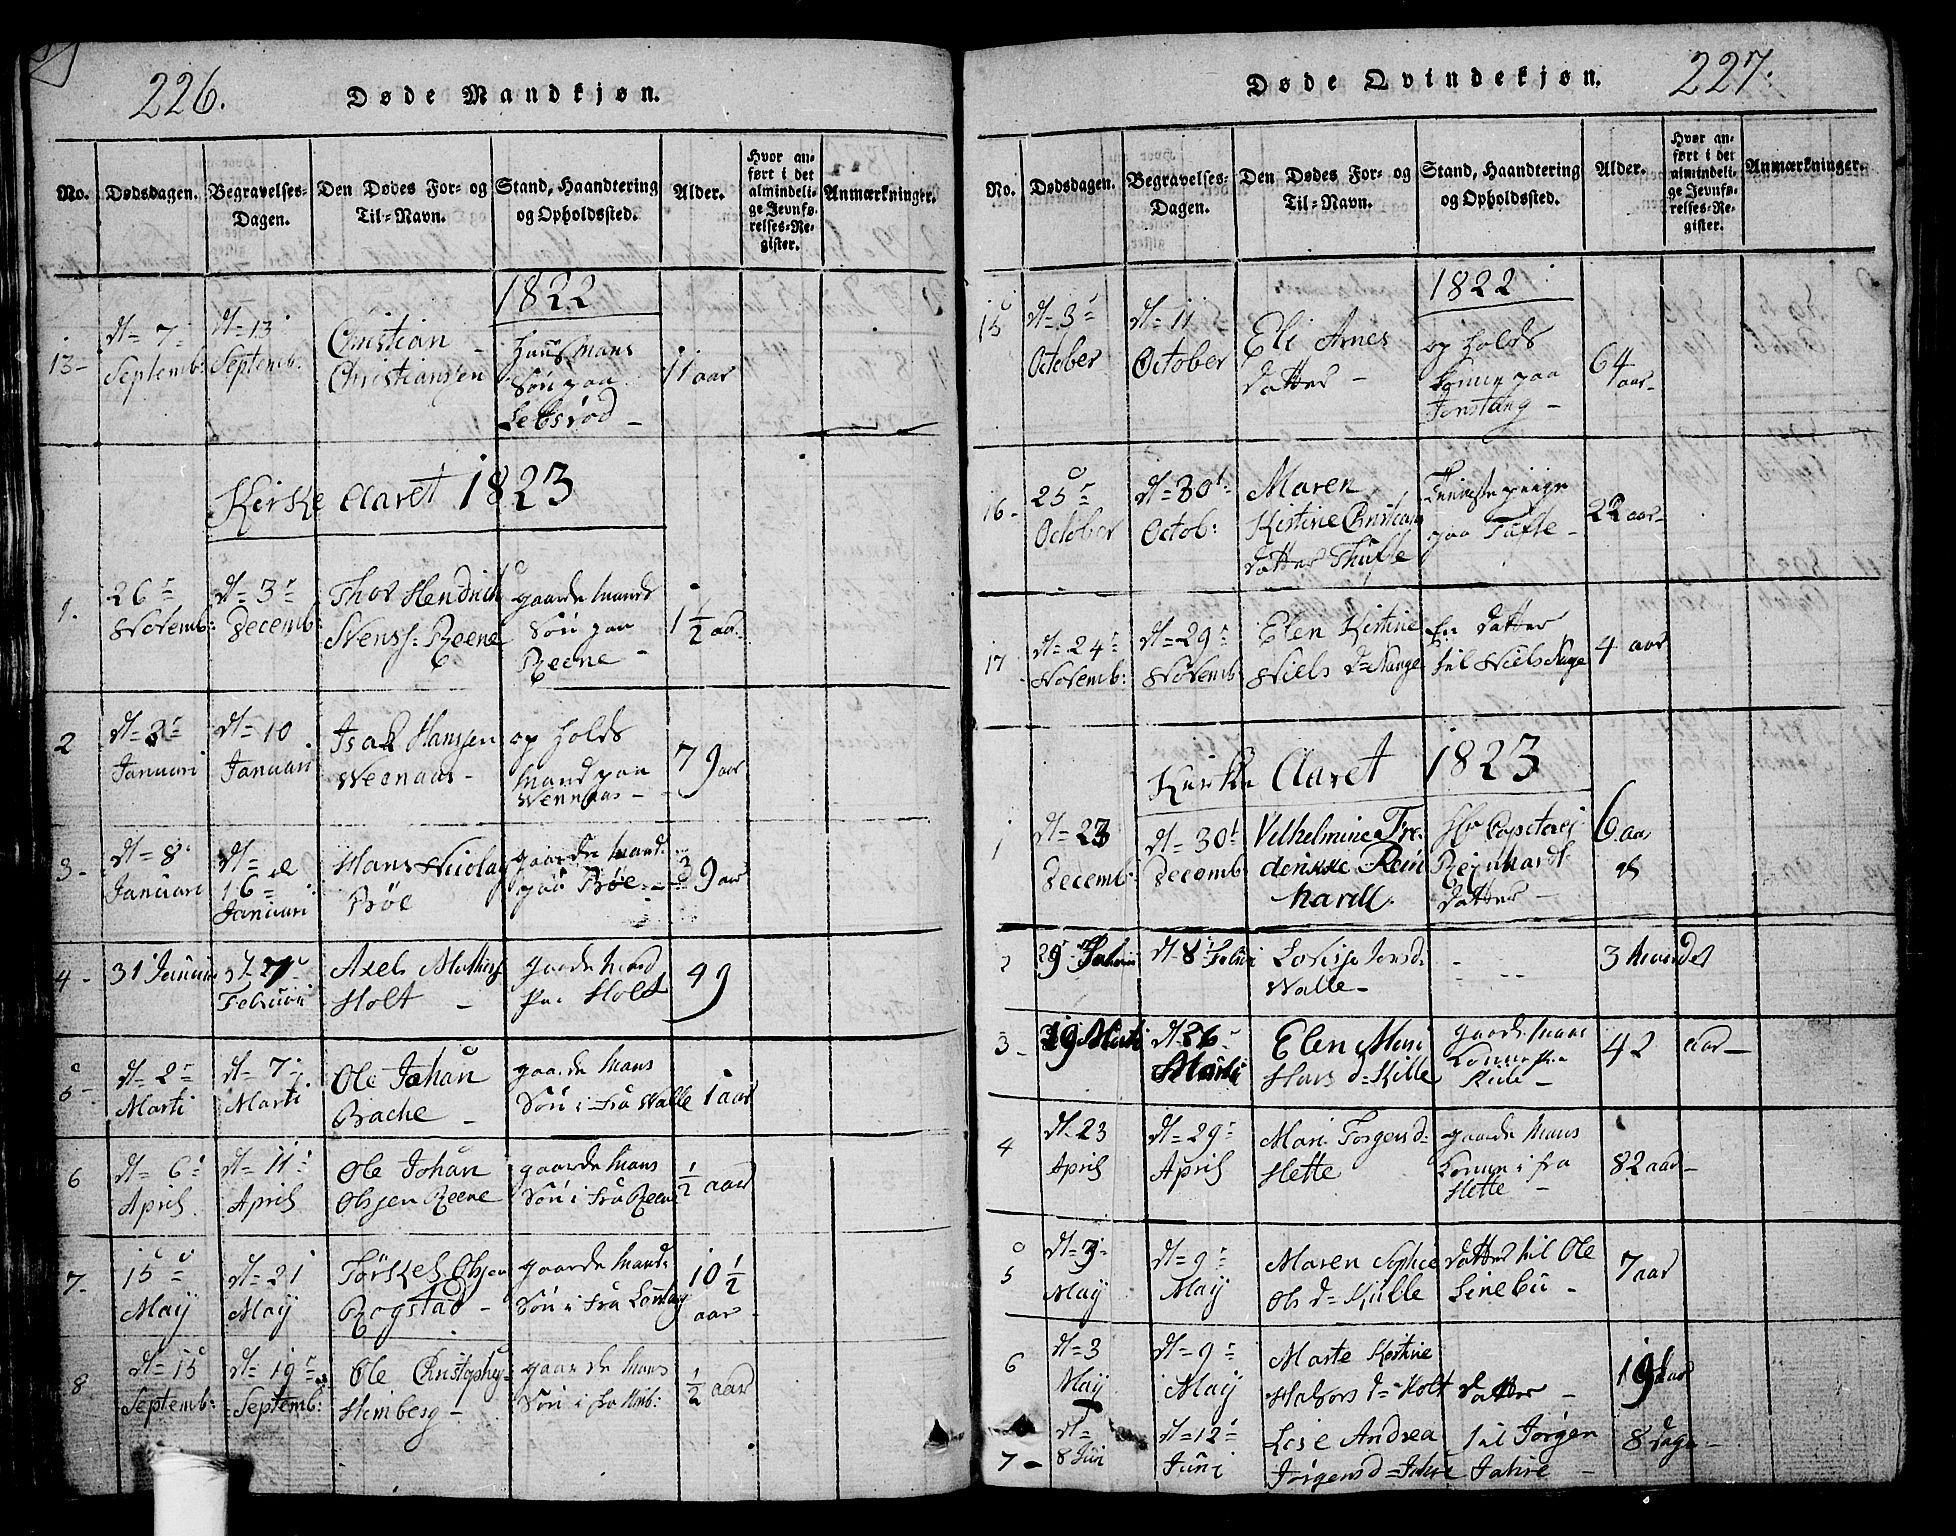 226.
Døde Mandkjøn.
No.
Dødsdagen.
Begravelses-
Dagen.
Den Dødes For- og
Til-Navn.
Stand, Haandtering
og Opholdssted.
Alder.
Hvor an-
ført i det
almindeli-
ge Jevnfø-
relses-Re-
gister.
Anmærkninger.
1822
13-
dt= 7
Septemb:
dt= 13
Septemb.
Christian
Christiansen
Huusmans
Søn paa
11 aar
Kirke Aaret 1823
1.
26
Novemb:
dt= 3
Decemb:
Thor Hendrich
Svenss: Reene
gaardemands
Søn paa
Reene
1 1/2 aar
2
dt=
Januari
dt= 10
Januari
Isak Hanssen
Weenaas-
opholds
mand paa
Wennaas-
79 aar
3-
dt= 8
Januari
dt=
16
Januari
Hans Nicolay
Bøe
gaardemand
paa Bøe
39 aar
4-
31 Januari
Februari
Axels Mathiess
Holt
gaardemand
paa Holt
49
5-
dt= 2
Marti
dt= 7
Marti
Ole Johan
Bache
gaardemans
Søn i fra Walle
1 aar
6
dt= 6
April
dt= 11
April
Ole Johan
Olsen Reene
gaardemans
Søn i fra Reene
1/2 aar
7-
15
Maÿ
dt= 21
Maÿ
Tørkel Olsen
Rogstad
gaardemands
Søn i fra
10 1/2
aar
8
dt= 15
Septemb:
dt= 19
Septemb:
Ole Christophers
Himberg
gaardemans
Søn i fra Himb:
1/2 aar
227.
Døde Qvindekjøn.
No.
Dødsdagen.
Begravelses-
Dagen.
Den Dødes For- og
Til-Navn.
Stand, Haandtering
og Opholdssted.
Alder.
Hvor an-
ført i det
almindeli-
ge Jevnfø-
relses-Re-
gister.
Anmærkninger.
1822
15
dt= 3
October
dt= 11
October
Eli Arnes
datter
opholds
konne paa
64
aar
16-
25
October
dt= 30
Octob:
Maren
Kistine Christians
datter Thufte
Tieniste piige
paa Tufte
22 aar
17
dt= 24
Novemb:
dt= 29
Novemb:
Elen Kistine
Niels d=
En datter
til Niels
4 aar
Kirke Aaret 1823
1
dt= 23
Decemb:
dt= 30
Decemb
Vilhelmine Fre-
derikke Rein
hardt.
Hr Capitain
Reinhardt
datter
6 aar
2
29
dt= 8
Lovisse Jens d:
Walle
3
3-
19 Marti
dt= 26
Marti
Elen Mari
Hans d=
gaardemans
konne fra
42 aar
4
dt= 23
April
dt= 29
April
Mari Torgers d:
Hette
gaardemans
konne i fra
Hette
82 aar
5
dt= 3
Maÿ
dt= 9
Maÿ
Maren Sophie
Ols d=
datter til Ole
Linebu
7 aar
6
dt= 3
Maÿ
dt= 9
Maÿ
Marte Kistine
Halvors d= Holt
datter
aar
7-
dt=
8 Juni
dt= 12
Juni
Lise Andrea
Jørgens d= Jahre
til Jørgen
Jahre
8 dage